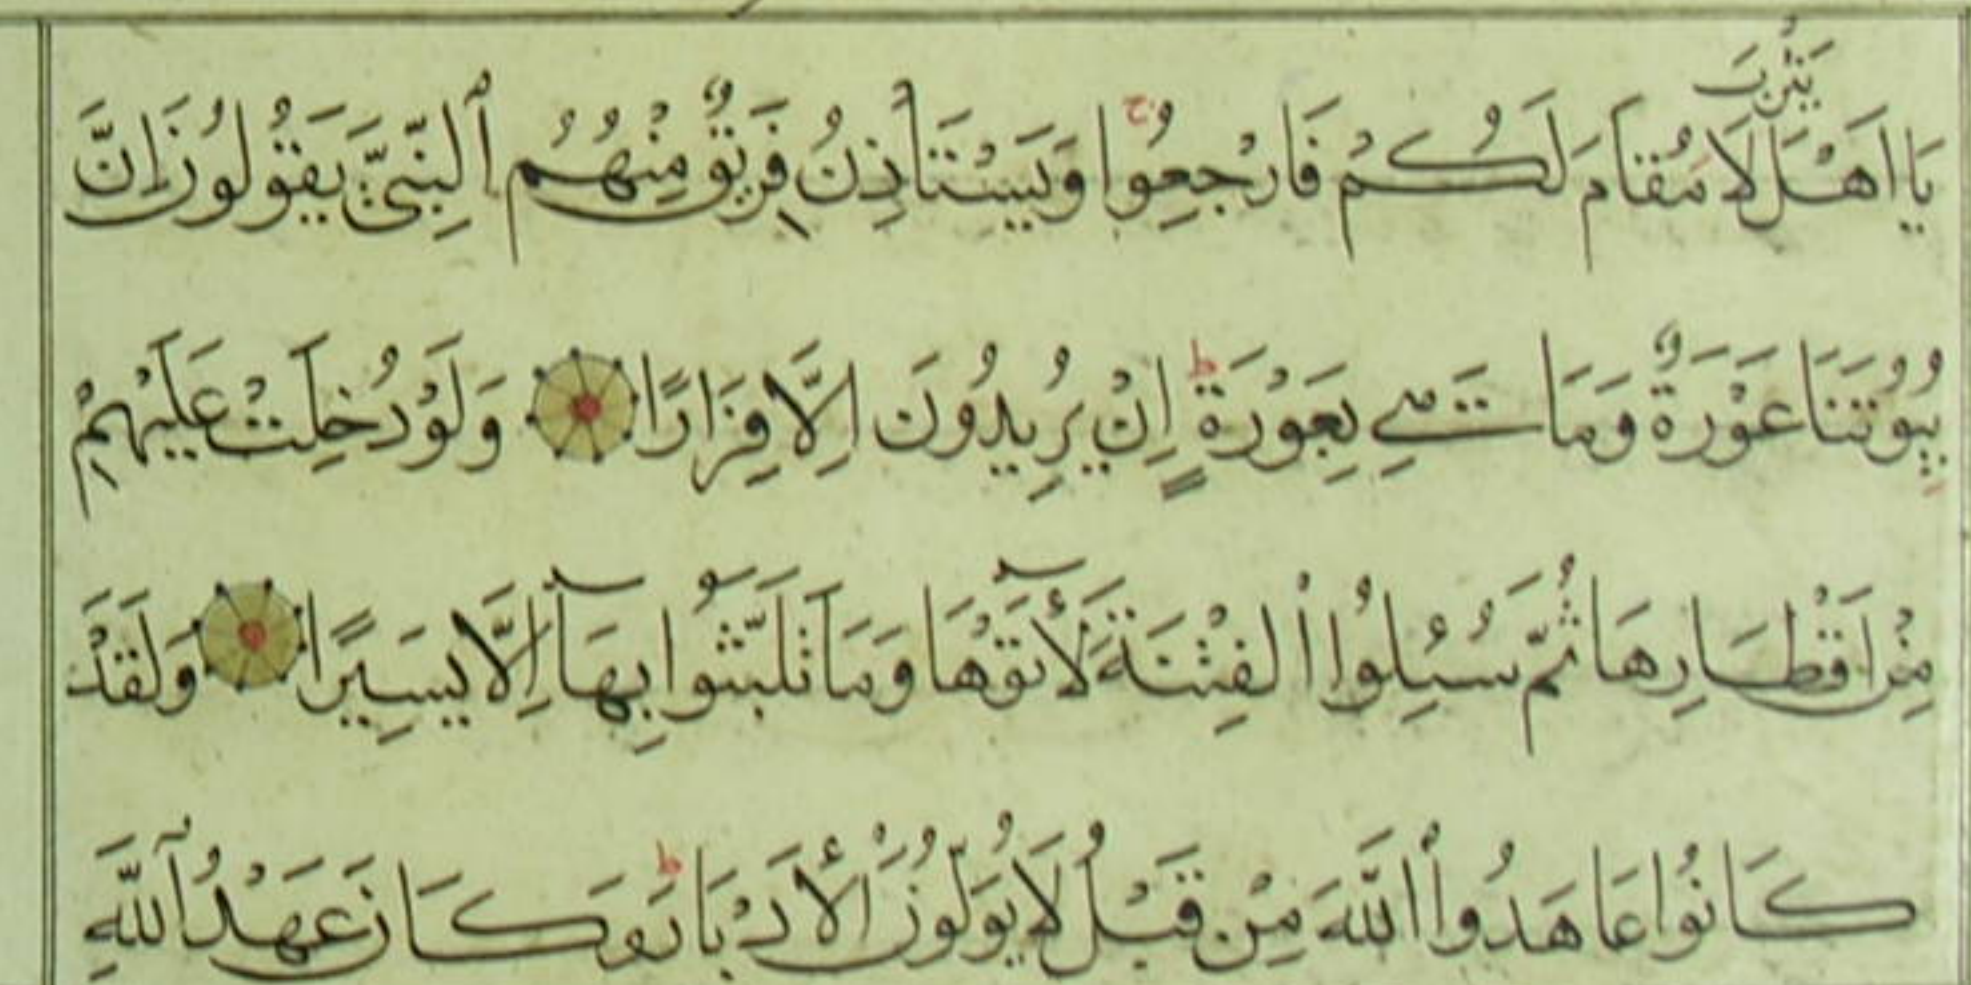 يَا اَهْلَ يَثْرِبَ لَا مُقَامَ لَكُمْ فَارْجِعُوا ج وَيَسْتَأْذِنُ فَرِيقٌ مِنْهُمُ ٱلنَّبِيَّ يَقُولُونَ اِنَّ
بُيُوتَنَا عَوْرَةٌ وَمَا هِيَ بِعَوْرَةٍ ط اِنْ يُرِيدُونَ اِلَّا فِرَارًا وَلَوْ دُخِلَتْ عَلَيْهِمْ
مِنْ اَقْطَارِهَا ثُمَّ سُئِلُوا ٱلْفِتْنَةَ لَأَتَوْهَا وَمَا تَلَبَّثُوا بِهَآ اِلَّا يَسِيرًا وَلَقَدْ
كَانُوا عَاهَدُوا ٱللَّهَ مِنْ قَبْلُ لَا يُوَلُّونَ ٱلْأَدْبَارَ ط وَكَانَ عَهْدُ ٱللَّهِ